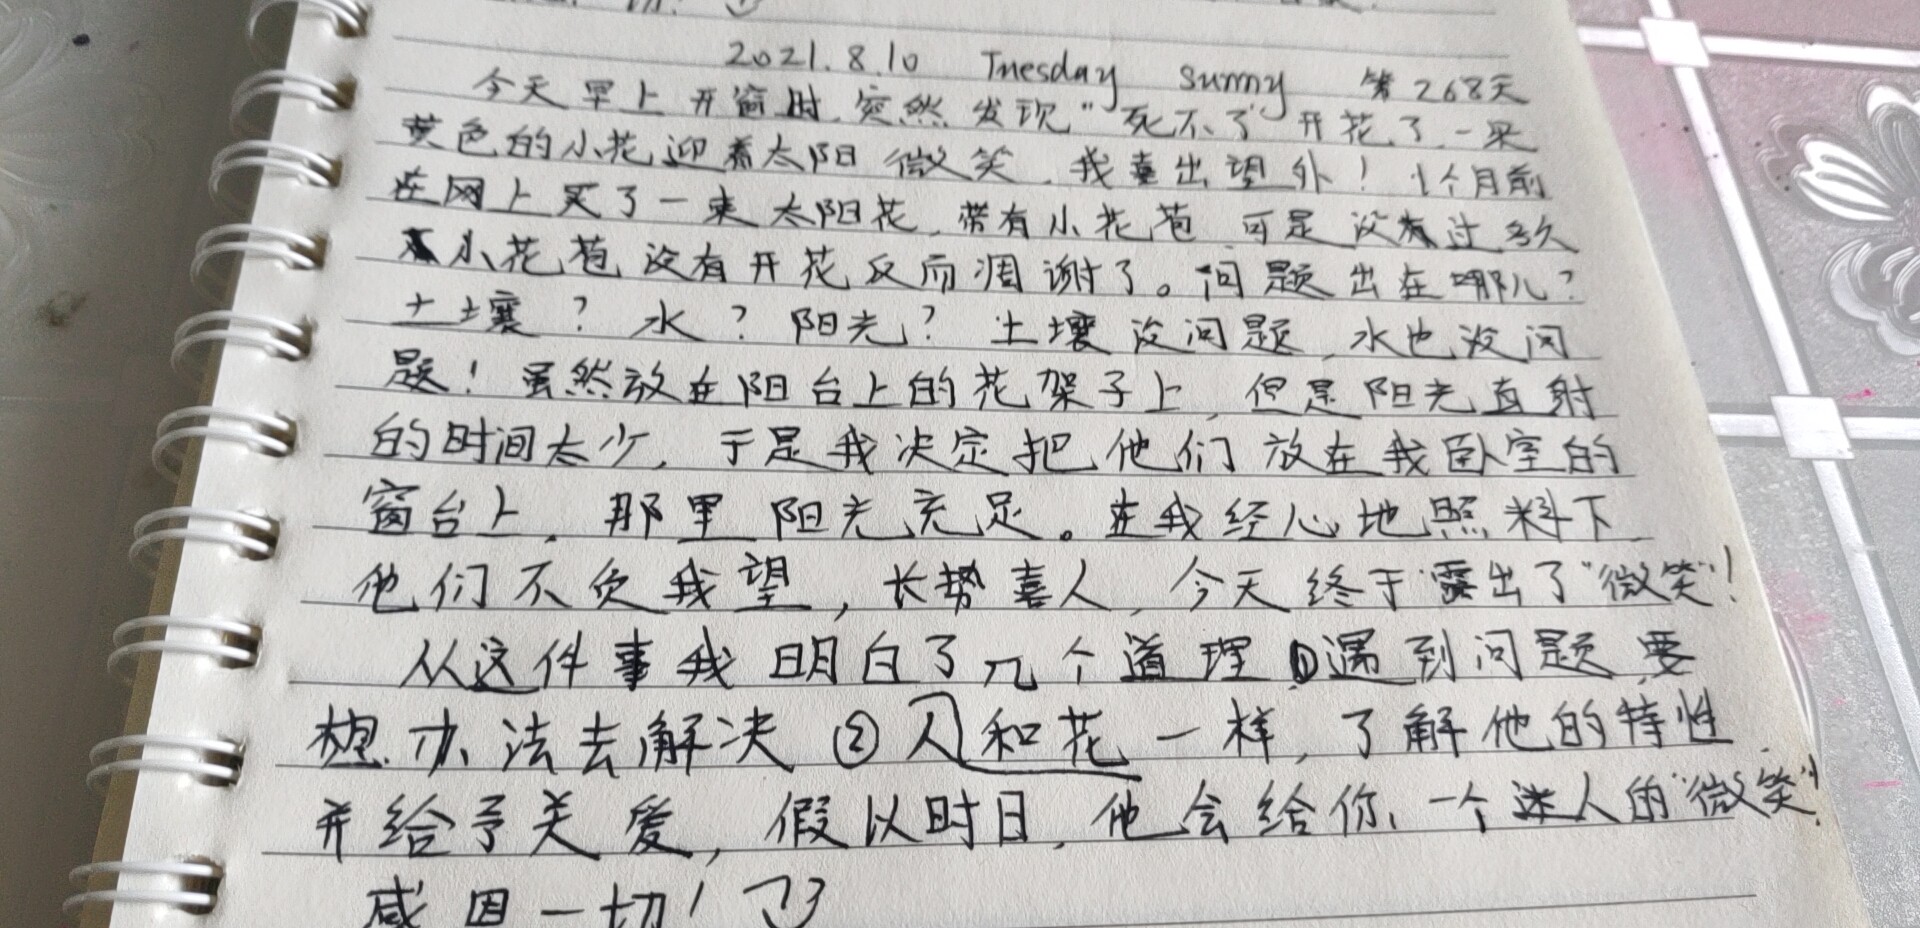 2021.8.10 Tuesday sunny 第268天
今天早上开窗时,突然发现"死不了"开花了,一朵
黄色的小花迎着太阳微笑,我喜出望外!1个月前
在网上买了一束太阳花,带有小花苞,可是没有过多久
小花苞没有开花反而凋谢了。问题出在哪儿?
土壤?水?阳光?土壤没问题,水也没问
题!虽然放在阳台上的花架子上,但是阳光直射
的时间太少,于是我决定把他们放在我卧室的
窗台上,那里阳光充足。在我经心地照料下
他们不负我望,长势喜人,今天终于露出了"微笑"!
从这件事我明白了几个道理①遇到问题,要
想办法去解决 ②人和花一样,了解他的特性
并给予关爱,假以时日,他会给你一个迷人的"微笑"!
感恩一切!